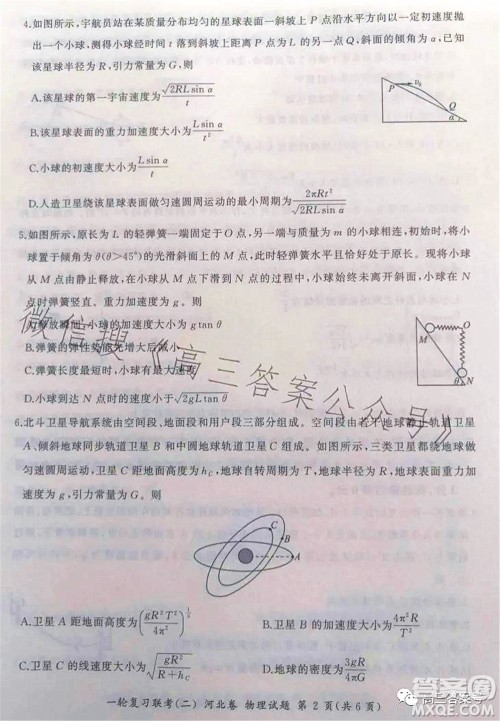 4.如图所示,宇航员站在某质量分布均匀的星球表面一斜坡上 P 点沿水平方向以一定初速度抛
出一个小球,测得小球经时间 t 落到斜坡上距离 P 点为 L 的另一点 Q,斜面的倾角为 α,已知
该星球半径为 R,引力常量为 G,则
A.该星球的第一宇宙速度为 \frac{\sqrt{2RL\sin α}}{t}
B.该星球表面的重力加速度大小为 \frac{L\sin α}{t^2}
C.小球的初速度大小为 \frac{L\sin α}{t}
D.人造卫星绕该星球表面做匀速圆周运动的最小周期为 \frac{2πRt^2}{\sqrt{2RL\sin α}}
P v₀ Q α
5.如图所示,原长为 L 的轻弹簧一端固定于 O 点,另一端与质量为 m 的小球相连,初始时,将小
球置于倾角为 θ(θ>45°)的光滑斜面上的 M 点,此时轻弹簧水平且恰好处于原长。现将小球
从 M 点由静止释放,在小球从 M 点下滑到 N 点的过程中,小球始终未离开斜面,小球在 N
点时弹簧竖直、重力加速度为 g。则
A.释放瞬间,小球的加速度为 g tan θ
B.弹簧的弹性势能先增大后减小
C.弹簧长度最短时,小球有最大速度
D.小球到达 N 点时的速度小于 \sqrt{2gL\tan θ}
M O θ N
6.北斗卫星导航系统由空间段、地面段和用户段三部分组成。空间段由若干地球静止轨道卫星
A、倾斜地球同步轨道卫星 B 和中圆地球轨道卫星 C 组成。如图所示,三类卫星都绕地球做
匀速圆周运动,卫星 C 距地面高度为 h_C,地球自转周期为 T,地球半径为 R,地球表面重力加
速度为 g,引力常量为 G。则
C B A
A.卫星 A 距地面高度为 (\frac{gR^2T^2}{4π^2})^{\frac{1}{3}}
B.卫星 B 的向心加速度大小为 \frac{4π^2R}{T^2}
C.卫星 C 的线速度大小为 \sqrt{\frac{gR^2}{R+h_C}}
D.地球的密度为 \frac{3gR}{4πG}
微信搜《高三答案公众号》
一轮复习联考(二) 河北卷 物理试题 第 2 页(共 6 页)